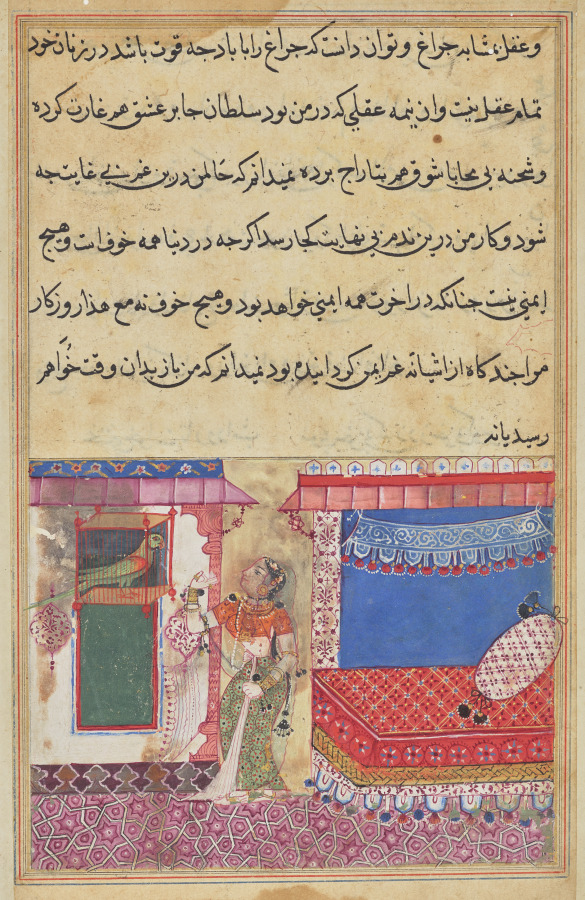 وعقل بمثابه چراغ وتوان دانست که چراغ را با باد چه قوت باشد در زنان خود
تمام عقل نیست وان نیمه عقلی که در من بود سلطان جابر عشق هم غارت کرده
وشحنه بی محابا شوق هم بتاراج برده نمیدانم که حال من درین غم بی غایت چه
شود وکار من درین ندم بی نهایت کجا رسد اکر چه در دنیا همه خوف است وهیچ
ایمنی نیست چنانکه در اخرت همه ایمنی خواهد بود وهیچ خوف نه مع هذا روزکار
مرا چند کاه از اشیانه غم ایمن کردانیده بود نمیدانم که من باز بدان وقت خواهم
رسید یا نه